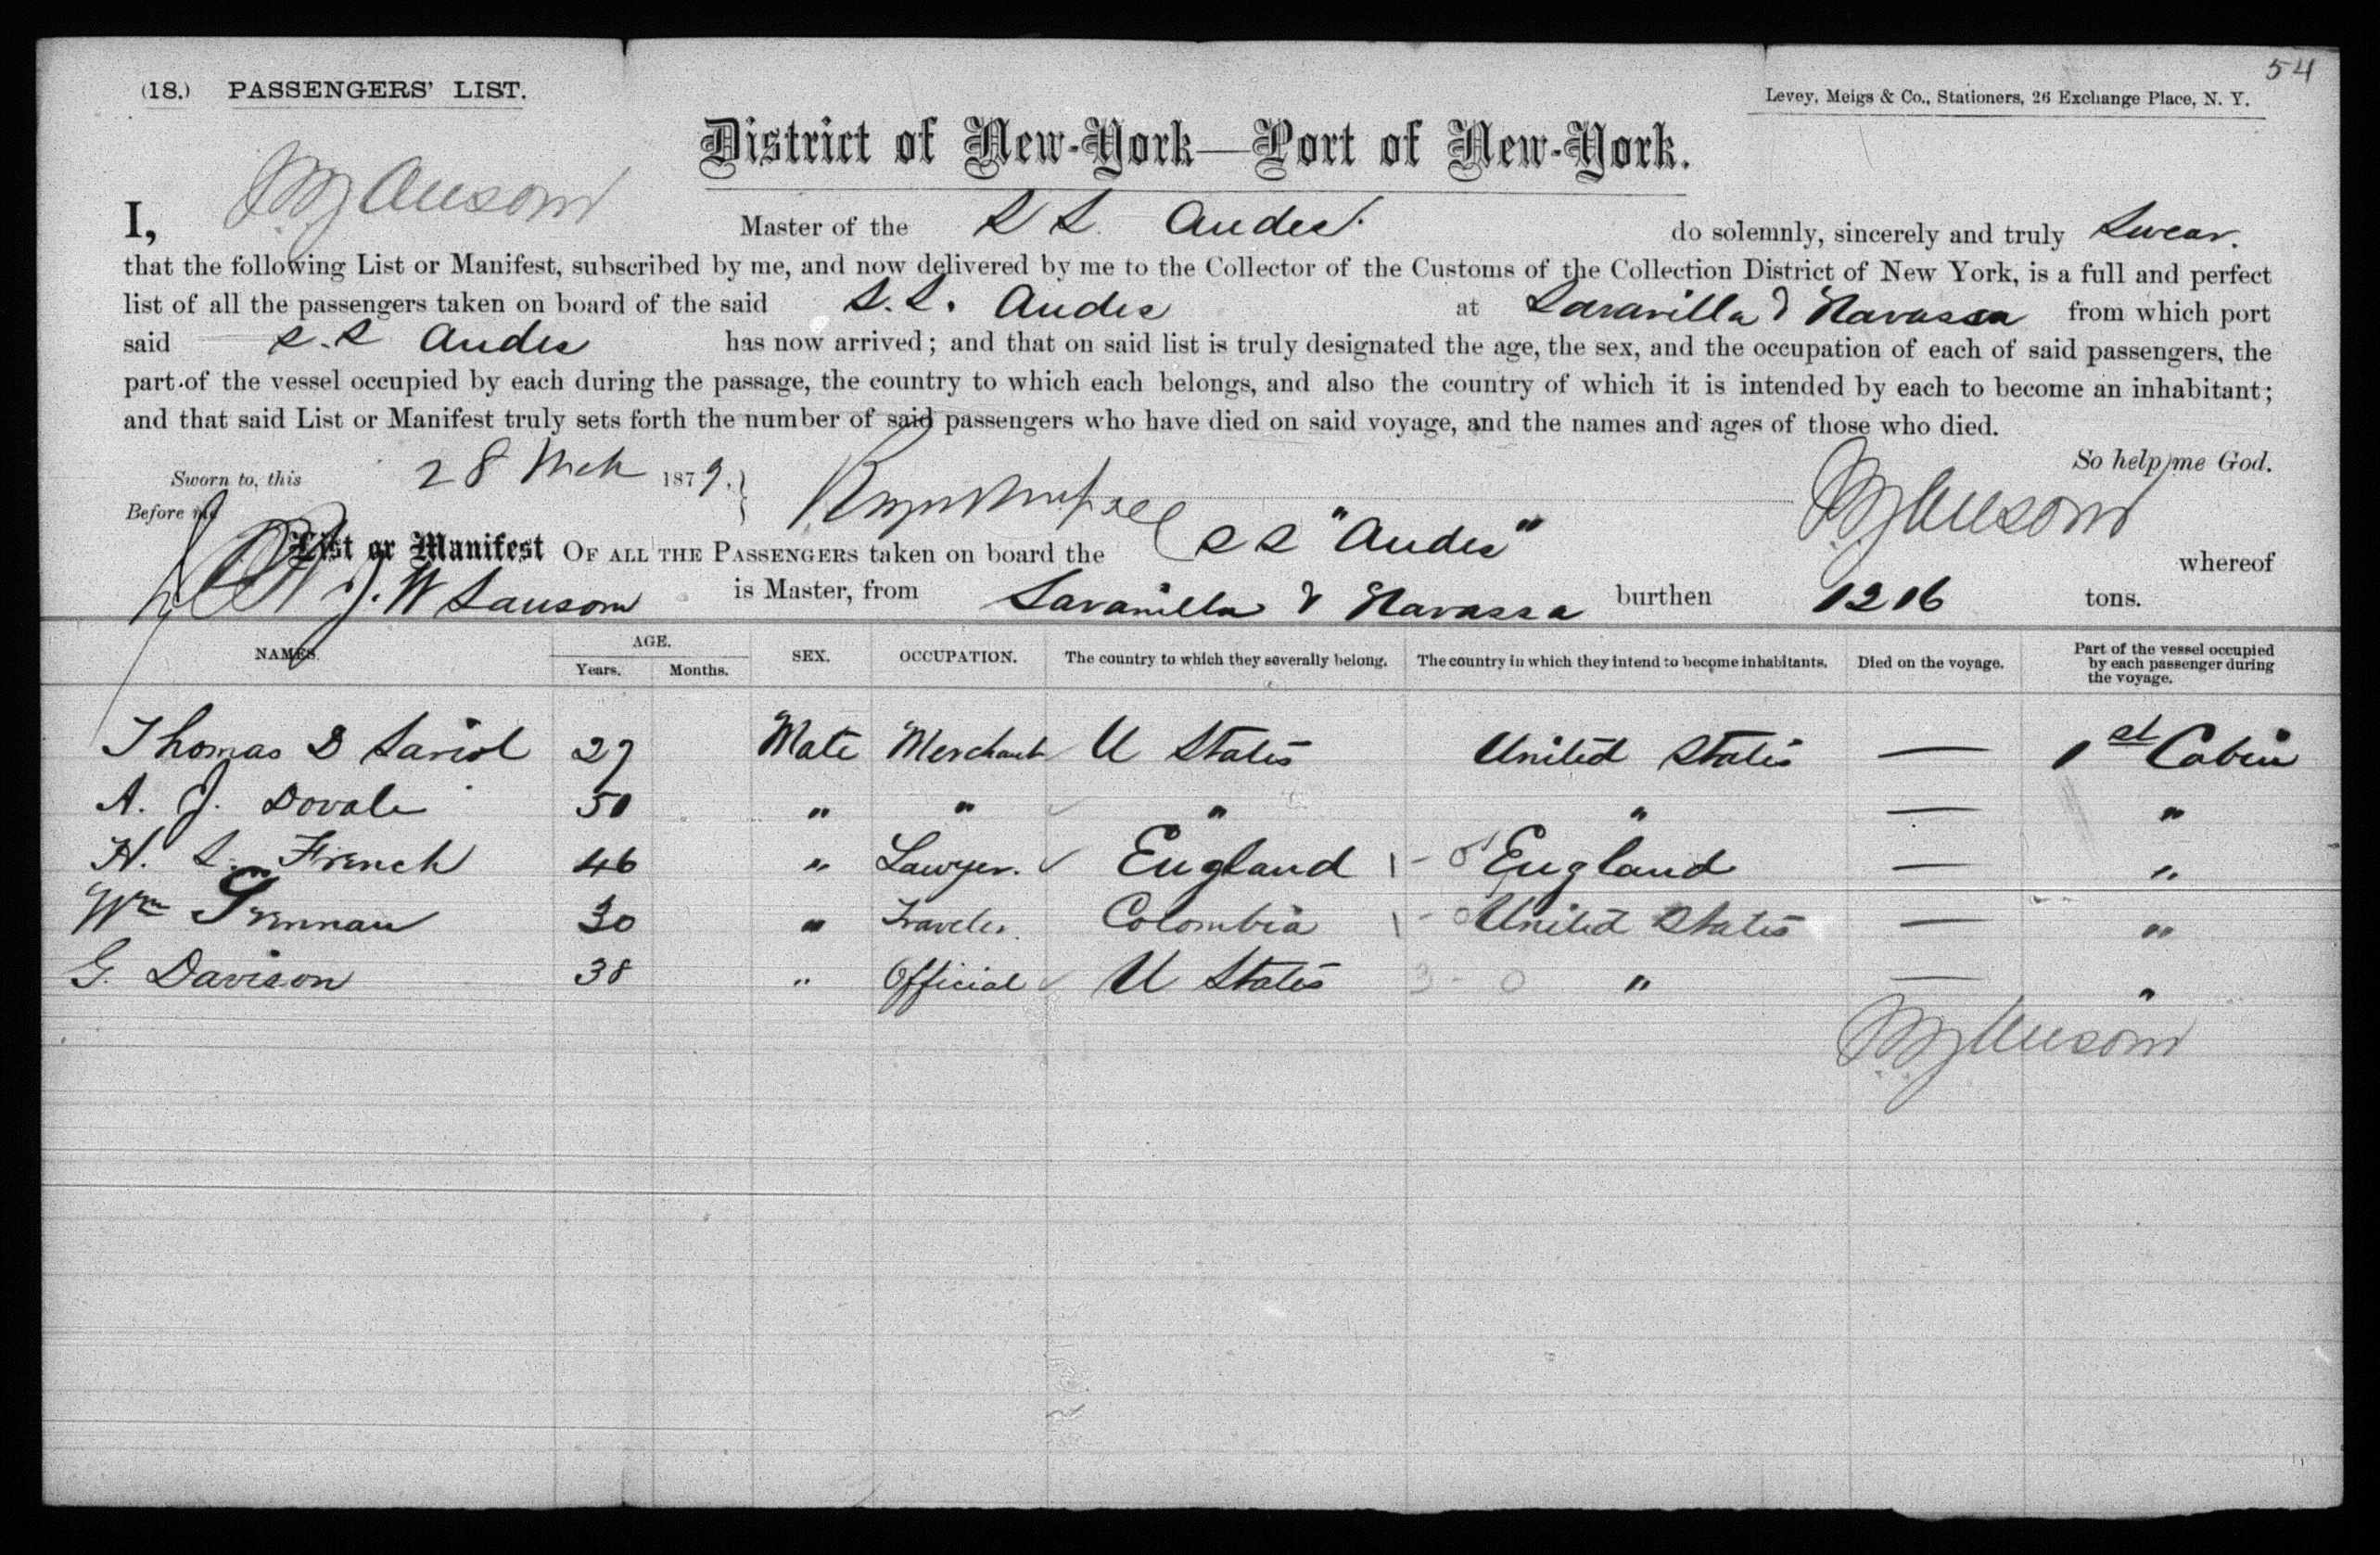 54
(18.) PASSENGERS' LIST.
Levey, Meigs & Co., Stationers, 26 Exchange Place, N. Y.
District of New-York—Port of New-York.
I, Master of the S S. Andes. do solemnly, sincerely and truly Swear.
that the following List or Manifest, subscribed by me, and now delivered by me to the Collector of the Customs of the Collection District of New York, is a full and perfect
list of all the passengers taken on board of the said S.S. Andes at Savanilla & Navassa from which port
said S.S Andes has now arrived; and that on said list is truly designated the age, the sex, and the occupation of each of said passengers, the
part of the vessel occupied by each during the passage, the country to which each belongs, and also the country of which it is intended by each to become an inhabitant;
and that said List or Manifest truly sets forth the number of said passengers who have died on said voyage, and the names and ages of those who died.
So help me God.
Sworn to, this 28 Mch 1879.
Before me
List or Manifest OF ALL THE PASSENGERS taken on board the S S "Andes" whereof
J. W Sansom is Master, from Savanilla & Navassa burthen 1216 tons.
NAMES. AGE. Years. Months. SEX. OCCUPATION. The country to which they severally belong. The country in which they intend to become inhabitants. Died on the voyage. Part of the vessel occupied by each passenger during the voyage.
Thomas D 27 Male Merchant U States United States — 1st Cabin
A. J. Dovale 50 " " " " — "
H. L. French 46 " Lawyer. England England — "
Wm 30 " Traveler. Colombia United States — "
G. Davison 38 " Official U States " — "